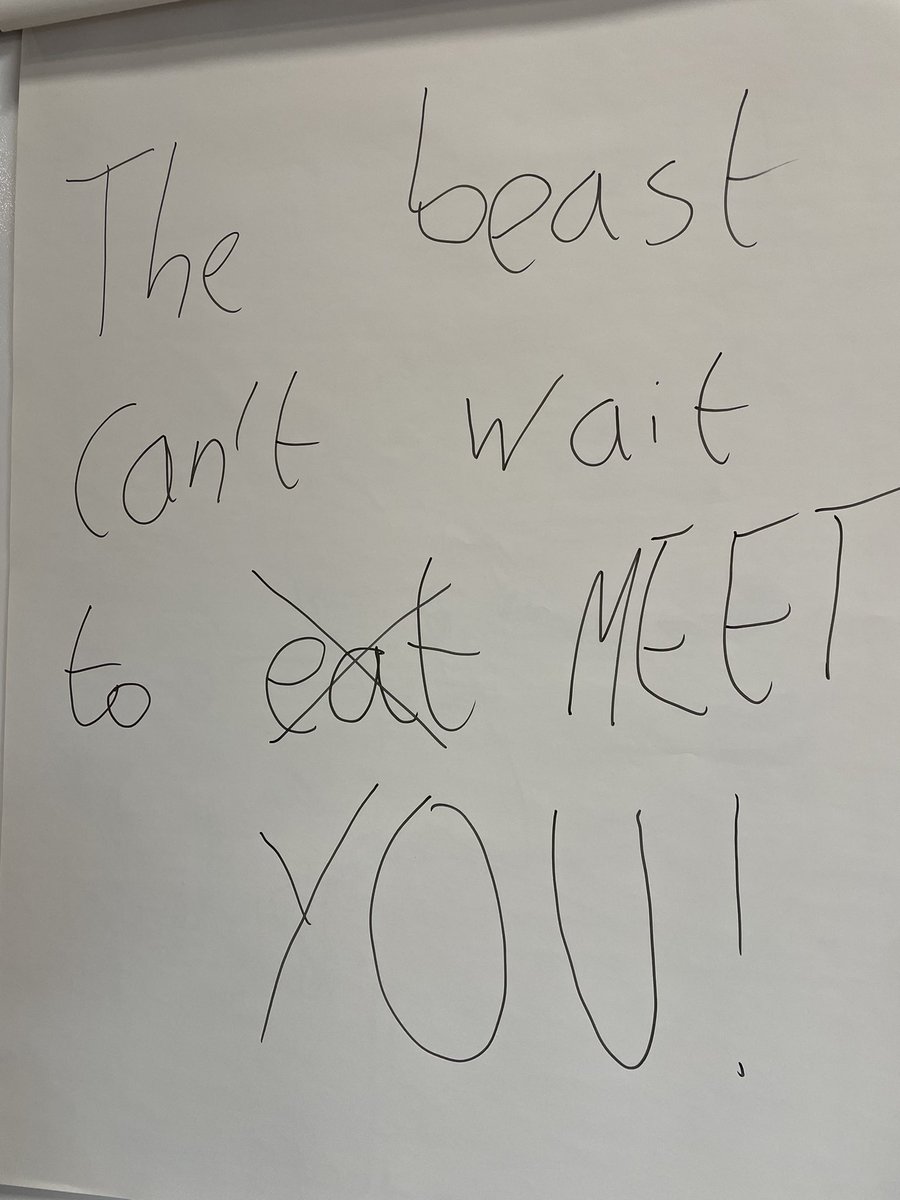 The beast
Can't wait
to eat MEET
YOU!